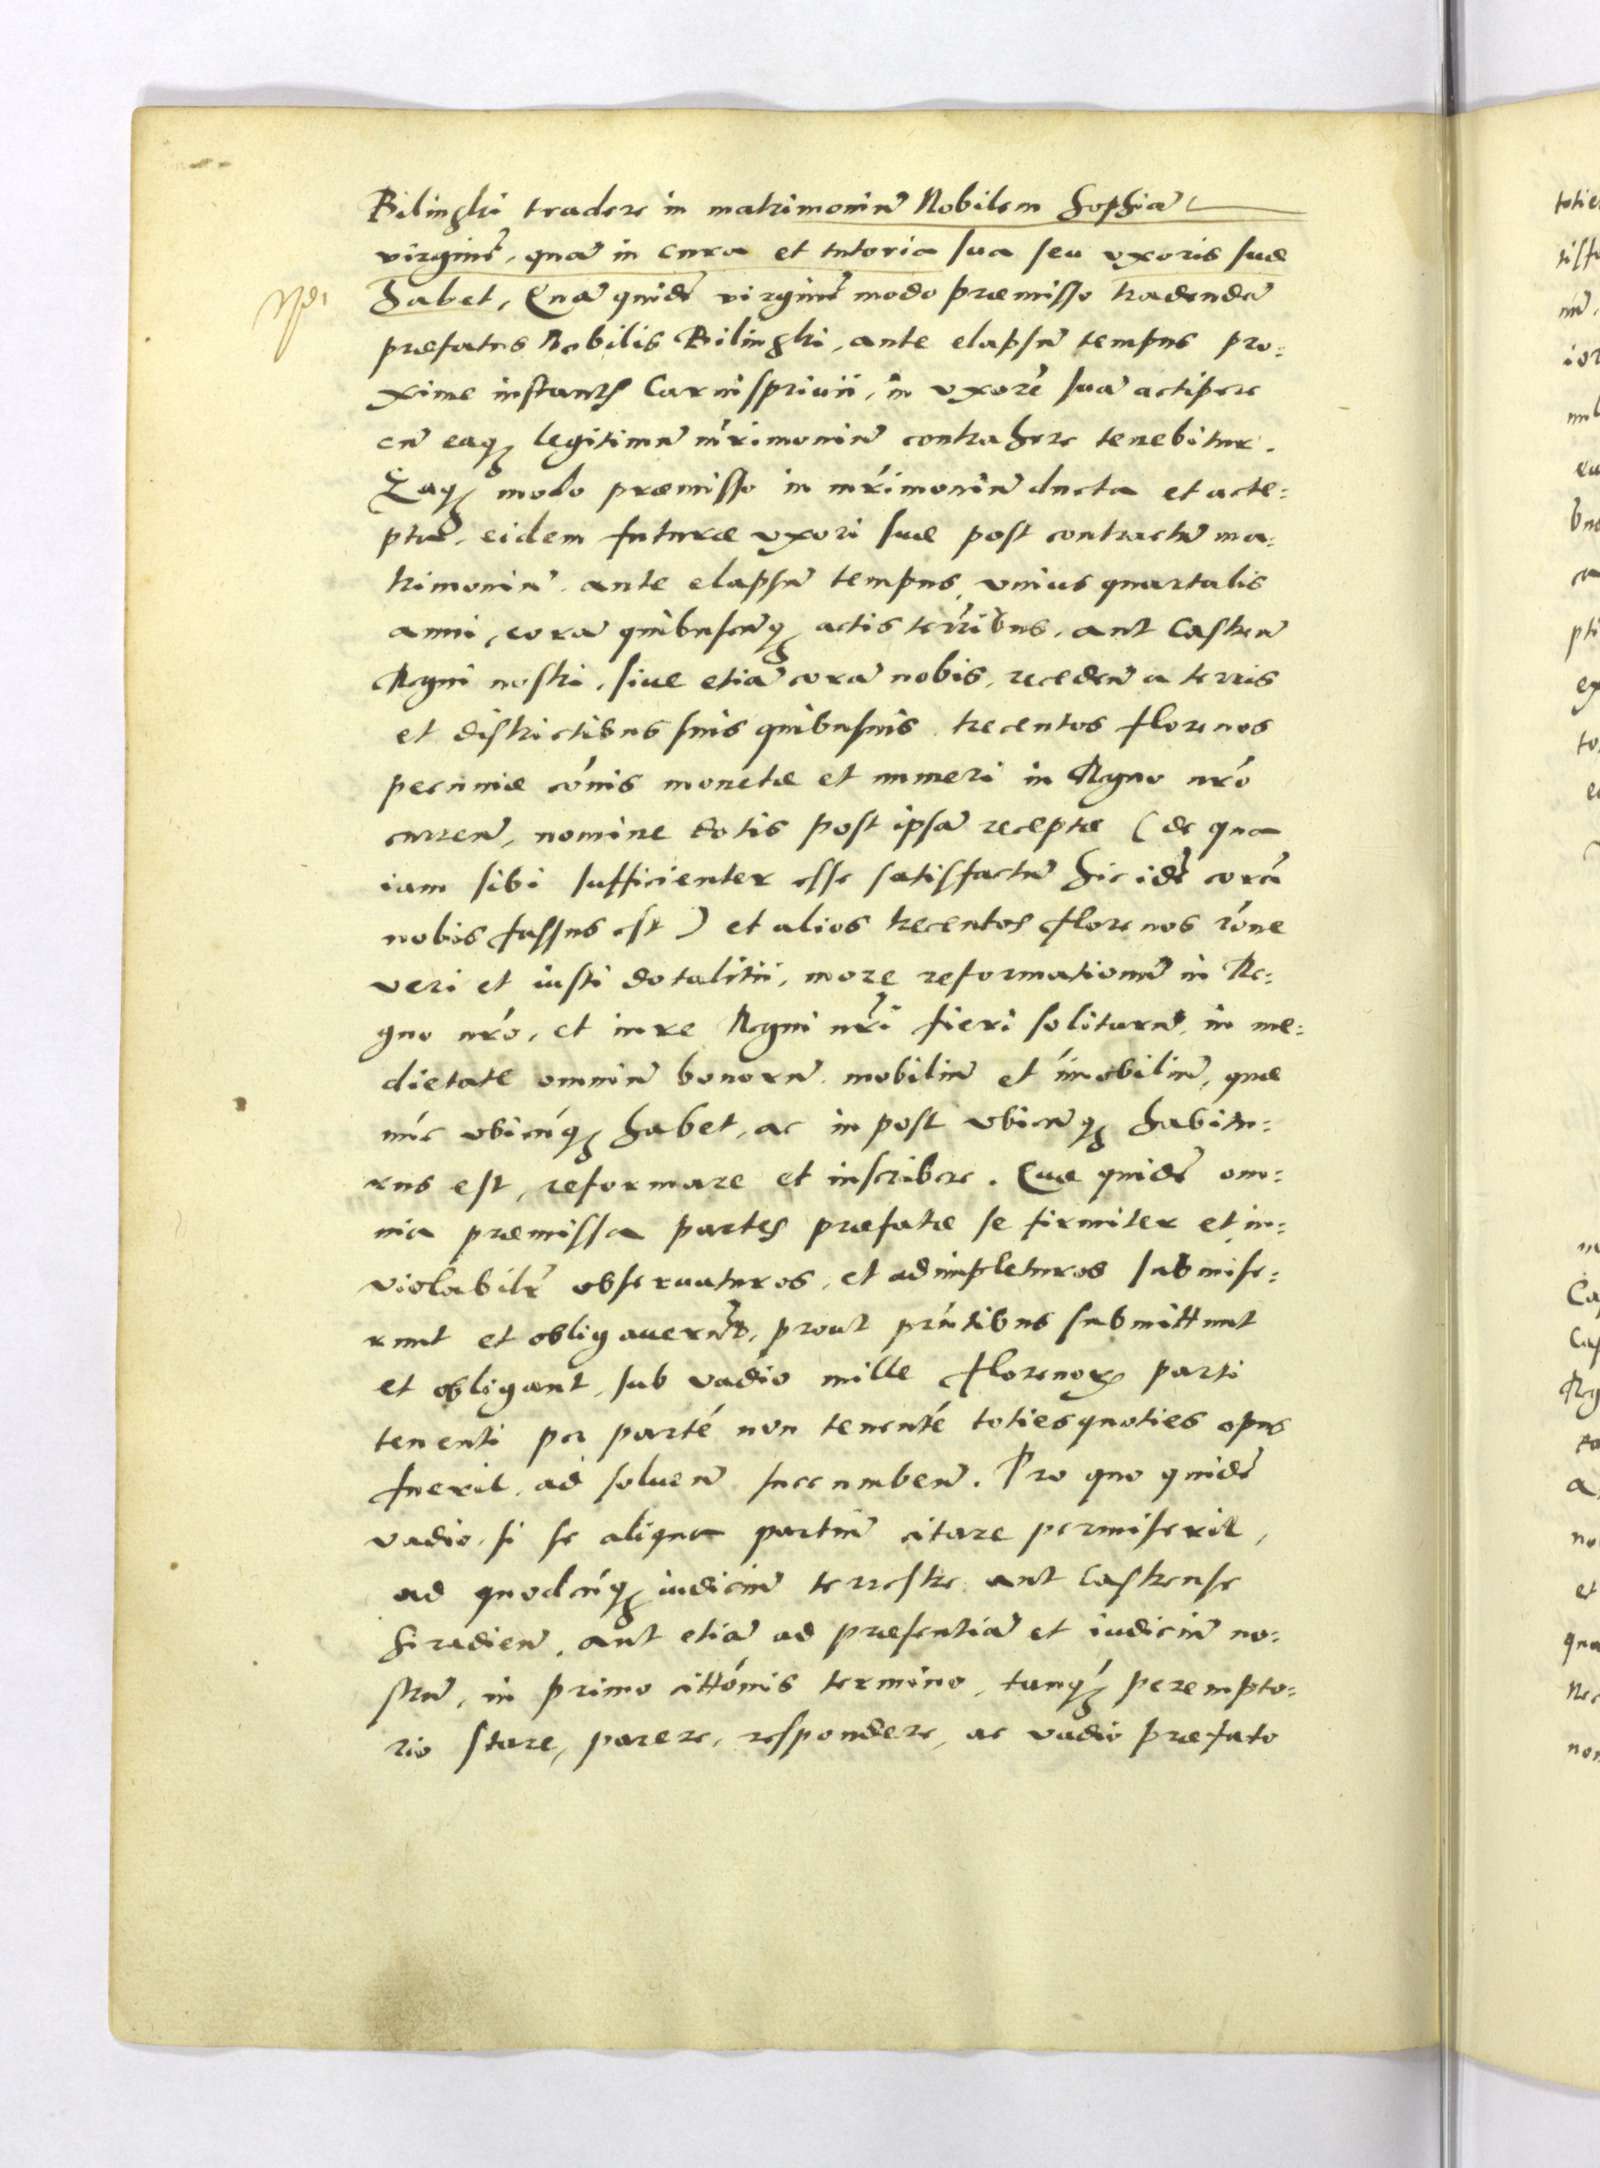 Bilinghi tradere in matrimoniũ Nobilem Sophiã
virginẽ, quã in cura et tutoria sua seu vxoris suæ
habet, Quã quidẽ virginẽ modo præmisso tradendã
præfatus Nobilis Bilinghi, ante elapsũ tempus pro:
xime instantis Carnispriuii, in vxorẽ suã accipere
cũ eaq₃ legitimũ mr̃imoniũ contrahere tenebitur.
Eaq₃ modo præmisso in mr̃imoniũ ducta et acce:
pta, eidem futuræ vxori suæ post contractũ ma:
trimoniũ, ante elapsũ tempus, vnius quartalis
anni, corã quibuscũq₃ actis terr̃ibus, aut Castreñ
Regni nostri, siue etiã corã nobis, recedeñ a terris
et districtibus suis quibusuis, trecentos florenos
pecuniæ cõis monetæ et numeri in Regno nr̃o
curreñ, nomine dotis post ipsã receptæ (de qua
iam sibi sufficienter esse satisfactũ hic idẽ corã
nobis fassus est) et alios trecentos florenos rõne
veri et iusti dotalitii, more reformationũ in Re:
gno nr̃o, et iure Regni nr̃i fieri soliturũ, in me:
dietate omniũ bonorũ, mobiliũ et im̃obiliũ, quæ
nũc vbicũq₃ habet, ac in post vbicũq₃ habitu:
rus est, reformare et inscribere. Quæ quidẽ om:
nia præmissa partes præfatæ se firmiter et in:
violabilr̃ obseruaturos, et adimpleturos submise:
runt et obligauerũt, prout pr̃ntibus submittunt
et obligant, sub vadio mille florenorꝝ parti
tenenti per partẽ non tenentẽ toties quoties opus
fuerit, ad solueñ succumbeñ. Pro quo quidẽ
vadio, si se aliqua partiũ citare permiserit,
ad quodcũq₃ iudiciũ terrestre aut Castrense
hiradieñ, aut etiã ad præsentiã et iudiciũ no:
strũ, in primo citt̃onis termino, tanq₃ perempto:
rio stare, parere, respondere, ac vadio præfato